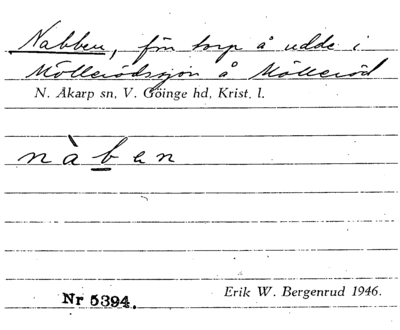 Nabben, förr torp å udde i
Möllerödssjön å Mölleröd
N. Åkarp sn, V. Göinge hd, Krist. l.
nàben
Nr 5394.
Erik W. Bergenrud 1946.